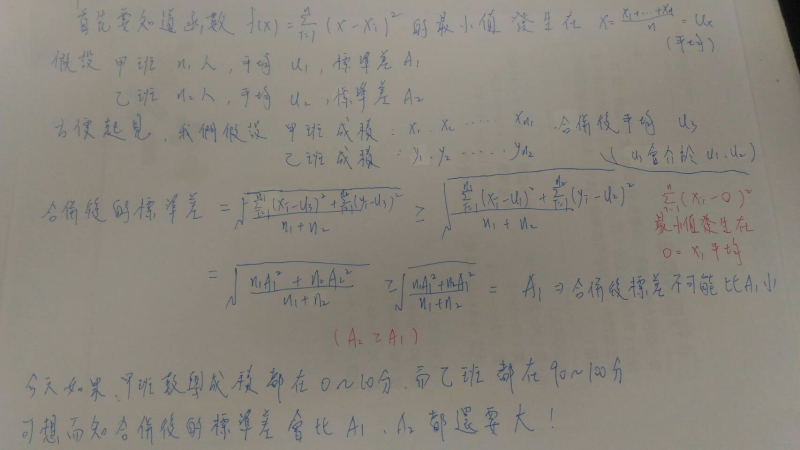 首先要知道函數 f(x)=Σ_{i=1}^{n}(x-x_i)² 的最小值發生在 x=(x_1+…+x_n)/n=u_x
(平均)
假設 甲班 n_1人,平均 u_1,標準差 A_1
乙班 n_2人,平均 u_2,標準差 A_2
方便起見,我們假設 甲班成績:x_1、x_2……x_{n_1} 合併後平均 u_3
乙班成績:y_1、y_2……y_{n_2} (u_3會介於 u_1、u_2)
合併後的標準差 =√((Σ_{i=1}^{n_1}(x_i-u_3)²+Σ_{i=1}^{n_2}(y_i-u_3)²)/(n_1+n_2)) ≥ √((Σ_{i=1}^{n_1}(x_i-u_1)²+Σ_{i=1}^{n_2}(y_i-u_2)²)/(n_1+n_2))
Σ_{i=1}^{n}(x_i-0)²
最小值發生在
0=x_i平均
=√((n_1A_1²+n_2A_2²)/(n_1+n_2)) ≥√((n_1A_1²+n_2A_1²)/(n_1+n_2)) = A_1 ⇒合併後標差不可能比A_1小
(A_2≥A_1)
今天如果,甲班數學成績都在0~20分,而乙班都在90~100分
可想而知合併後的標準差會比A_1、A_2都還要大!